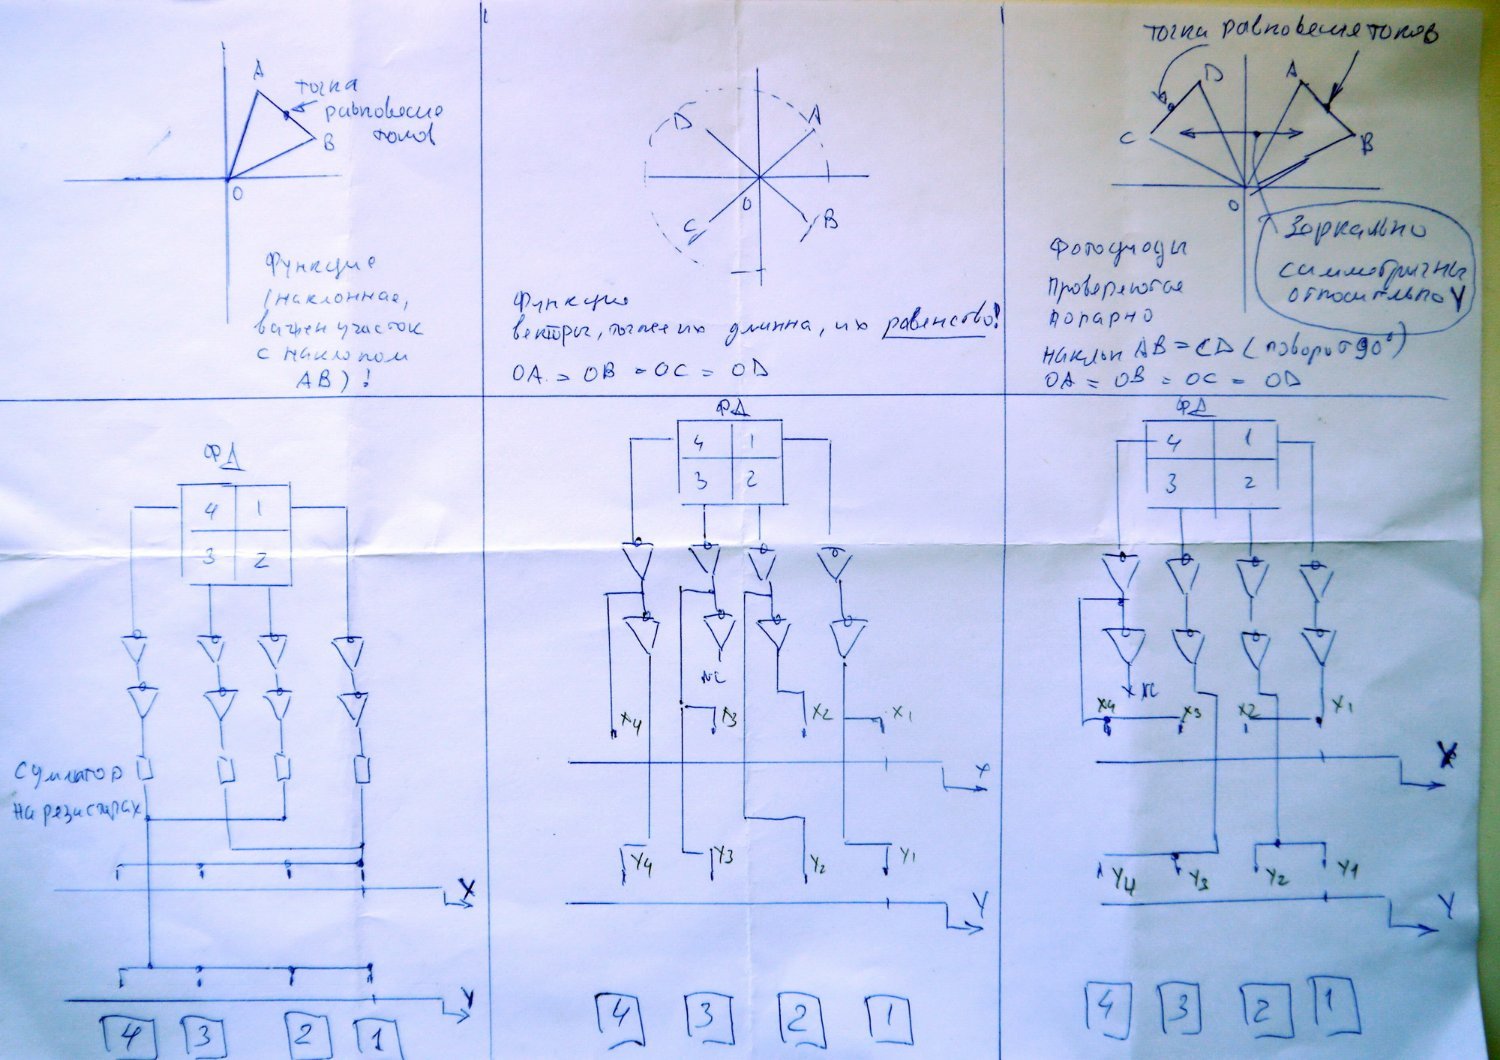 A
точка
равновесие
токов
B
O
Функция
(наклонная,
важен участок
с наклоном
AB)!
D
A
O
C
B
Функция
векторы, точнее их длинна, их равенство!
OA = OB = OC = OD
точки равновесие токов
D
A
C
B
O
Зеркально
симметричны
относительно Y
Фотодиоды
Проверяются
попарно
наклон AB = CD (поворот 90°)
OA = OB = OC = OD
ФД
4 1
3 2
сумматор
на резисторах
X
Y
4 3 2 1
ФД
4 1
3 2
NC
X4 X3 X2 X1
X
Y4 Y3 Y2 Y1
Y
4 3 2 1
ФД
4 1
3 2
NC
X4 X3 X2 X1
X
Y4 Y3 Y2 Y1
Y
4 3 2 1